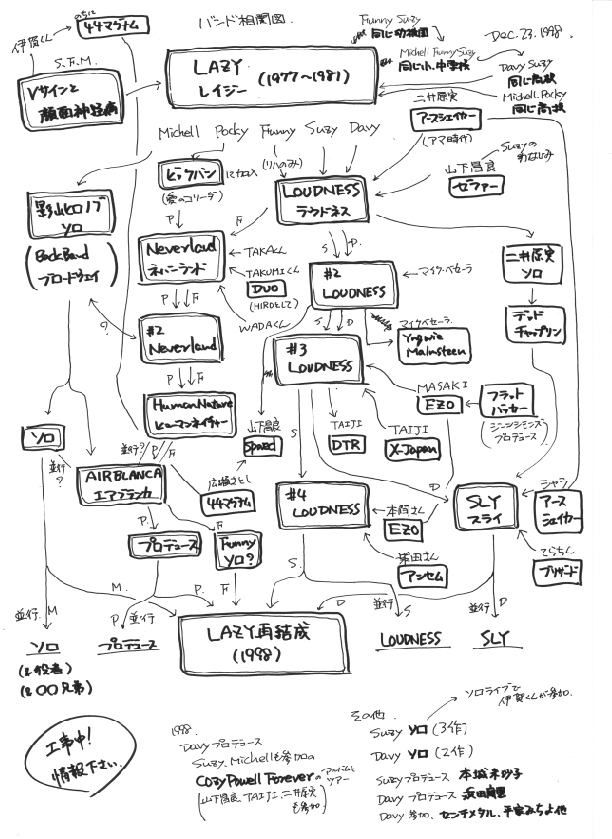 バンド相関図.
Dec. 23. 1998
のちに
44マグナム
伊賀くん
S.F.M.
Vサインと
顔面神経痛
LAZY
レイジー (1977〜1981)
Funny Suzy
同じ幼稚園
Michell Funny Suzy
同じ小、中学校
Davy Suzy
同じ高校
Michell. Pocky
同じ高校
二井原実
アースシェイカー
(アマ時代)
Michell Pocky Funny Suzy Davy
Suzyの
おさななじみ
山下昌良
ゼファー
ビッグバン
に加入
(愛のコリーダ)
(リハのみ)
LOUDNESS
ラウドネス
影山ヒロノブ
ソロ
(Back Band
ブロードウェイ)
P F
Neverland
ネバーランド
TAKAくん
TAKUMIくん
DUO
(HIROとして)
WADAくん
S D.
#2
LOUDNESS
マイク・ベセーラ
二井原実
ソロ
デッド
チャップリン
?
P F
#2
Neverland
S D
マイクベセーラ
Yngwie
Malmsteen
#3
LOUDNESS
P F
Human Nature
ヒューマンネイチャー
MASAKI
EZO
フラット
バッカー
(ジーンシモンズ
プロデュース)
山下昌良
Spread
TAIJI
DTR
TAIJI
X-Japan
S
ソロ
並行
?
並行?
P F
AIR BLANCA
エアブランカ
広瀬さとし
44マグナム
#4
LOUDNESS
本間さん
EZO
柴田さん
アンセム
D
SLY
スライ
シャラ
アース
シェイカー
てらちん
ブリザード
P. F
プロデュース
Funny
ソロ?
M. P. F
S. D
並行 M
P 並行
並行 S
並行 D
ソロ
(&役者)
(&〇〇兄弟)
プロデュース
LAZY再結成
(1998)
LOUDNESS
SLY
工事中!
情報下さい.
1998
Davy プロデュース
Suzy, Michellも参加の
Cozy Powell Foreverのアルバムと
ツアー
(山下昌良, TAIJI, 二井原実
も参加)
その他
ソロライブで
伊賀くんが参加.
Suzy ソロ (3作)
Davy ソロ (2作)
Suzyプロデュース 本城未沙子
Davy プロデュース 浜田麻里
Davy 参加. センチメタル、平家みちよ他